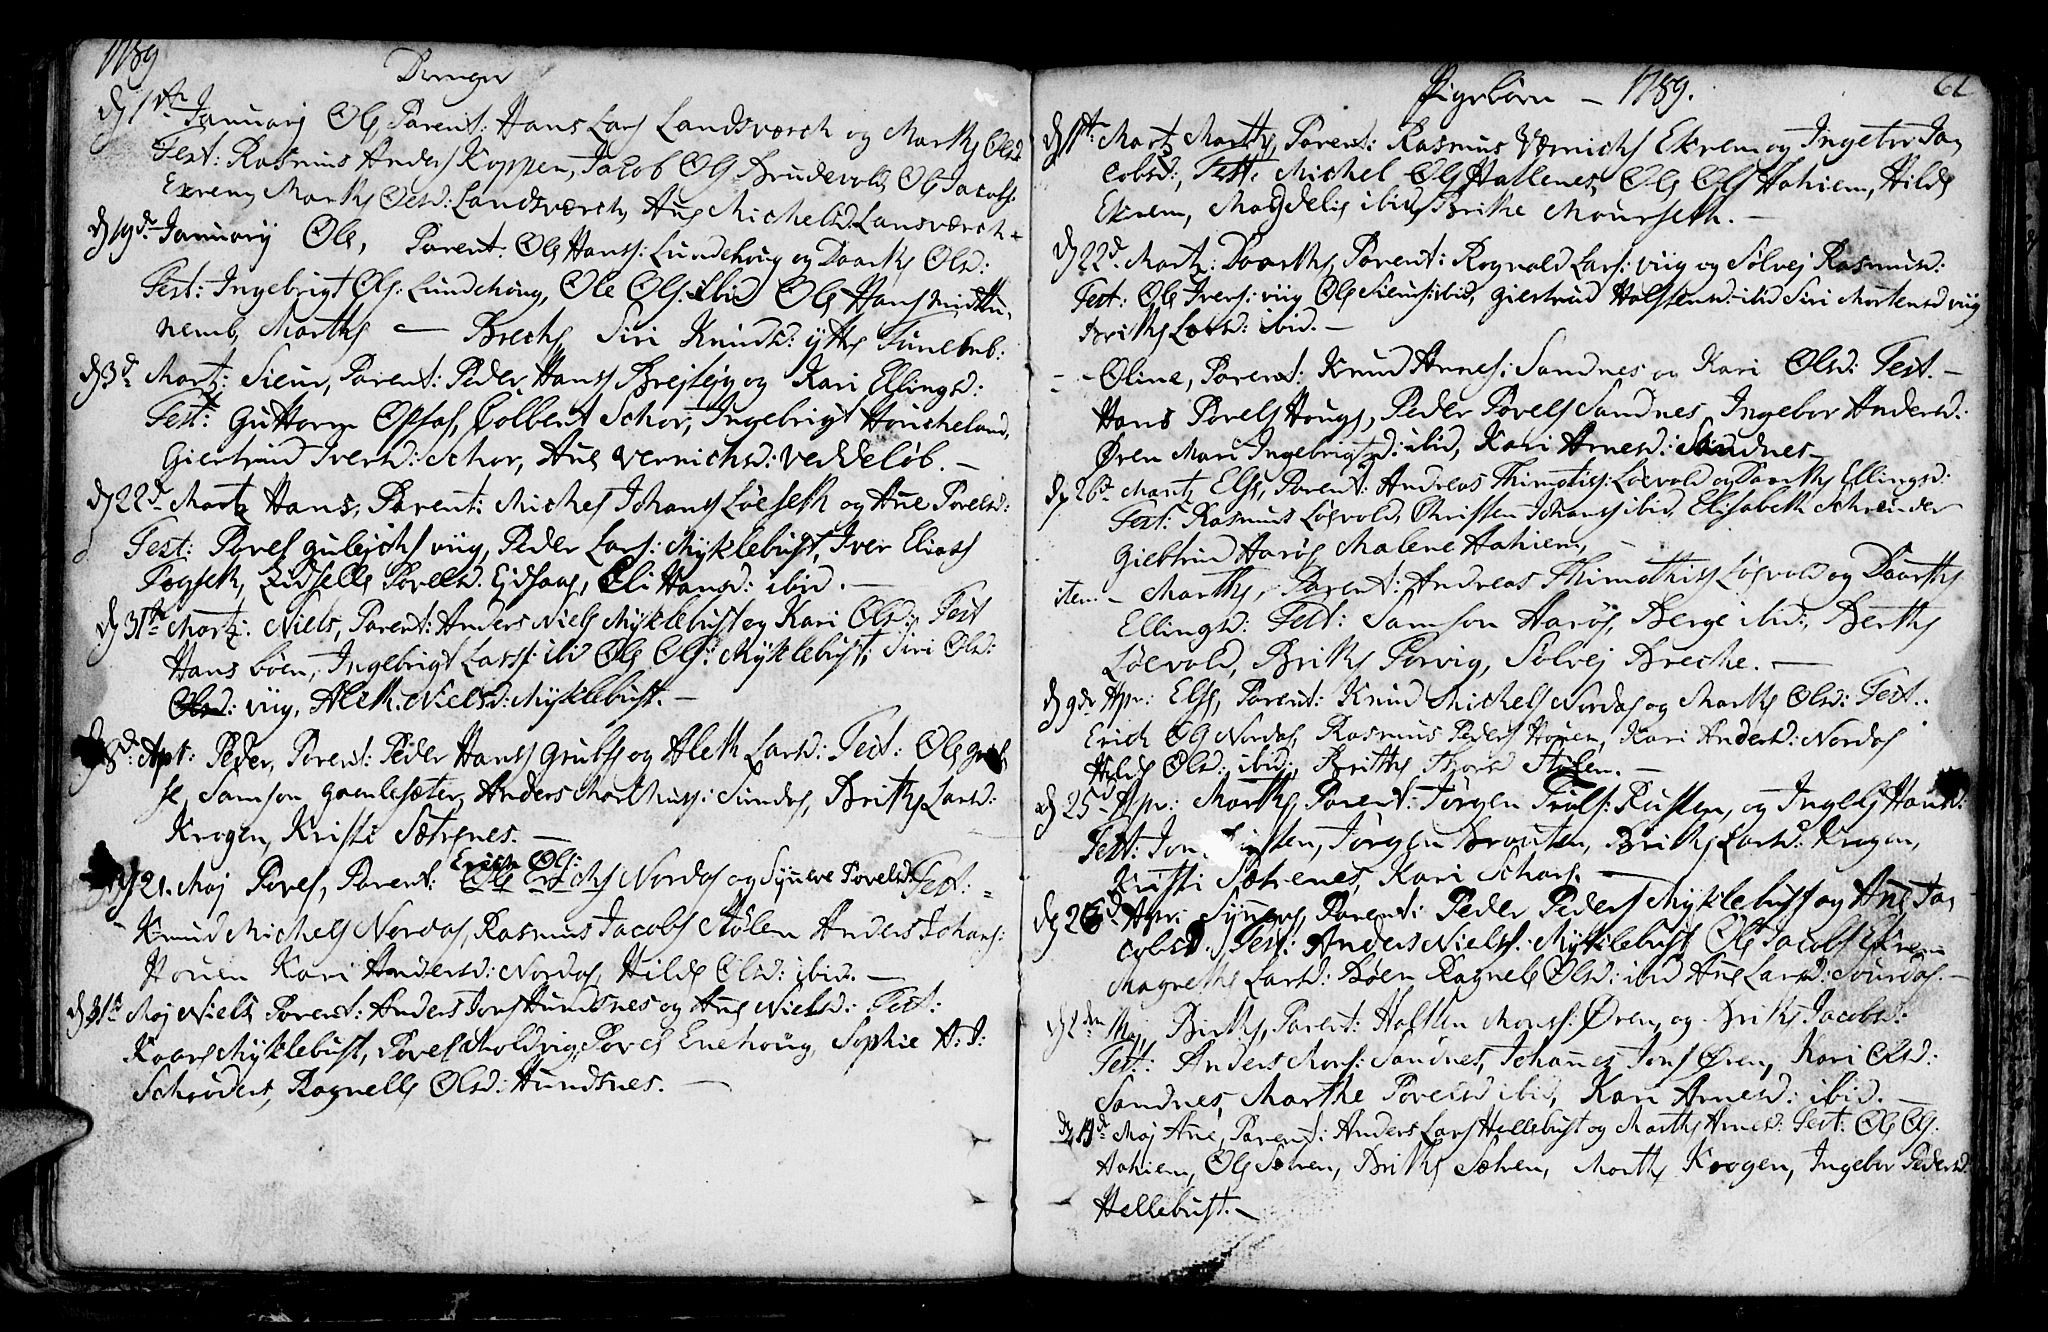 1789
Drenger
d 1ste January Ole, Parent: Hans Lars: Landsværch og Marthe Olsd:
Test: Rasmus Anders: Koppen, Jacob Ols: Brudevold, Ole Jacobs:
Exrem, Marthe Olsd: Landsværch, Ane Michelsd: Lansværch.
d 19de January Ole, Parent: Ole Hans: Lundehoug og Daarthe Olsd:
Test: Ingebrigt Ols: Lundehoug, Ole Ols: ibid Ole Hans
nemb, Marthe — Breche, Siri Knudsd: ytte
d 3de Martz: Sieur, Parent: Peder Hans: Brejtejg og Kari Ellingsd:
Test: Guttorm Opsal, Colbent Schor, Ingebrigt Houcheland,
Giertrud Iversd: Schor, Ane Vernichsd: Veddeløb. —
d 22de Martz Hans, Parent: Michel Johans: Løeseth og Ane Povelsd:
Test: Povel Gulejchs: viig, Peder Lars: Myklebust, Iver Elias:
Pogseth, Zidselle Povelsd: Eidsaae, Eli Hansd: ibid. —
d 31te Martz: Niels, Parent: Anders Niels: Myklebust og Kari Olsd: Test
Hans Böen, Ingebrigt Lars: ibid Ole Ols: Myklebust, Siri Olsd:
viig, Aleth Nielsd: Myklebust. —
8de Apr: Peder, Parent: Peder Hans: Grubse og Aleth Larsd: Test: Ole Grub
se, Samson Gamlesæter, Anders Malthus: Sundal, Brithe Larsd:
Krogen, Kristi Sætrenes. —
d 21. Maj Povel, Parent: Erich Ols: Nordal og Syneve Povelsd: Test: =
Knud Michels: Nordal, Rasmus Jacobs: Stølen Anders Johans:
Houen Kari Andersd: Nordal, Hilde Olsd: ibid. —
d 31te Maj Niels Parent: Anders Jons: Hundsnes og Ane Nielsd: Test:
Kaare Myklebust, Povel Moldvig, Povel Enehoug, Sophie A: J:
Schrøders, Ragnelle Olsd: Hundsnes. —
Pigebørn — 1789.
d 1te Martz Marthe, Parent: Rasmus Vernichs: Ekrem og Ingebor Ja,
cobsd:, Test: Michel Ols: Hallenes, Ole Ols: Hahiem, Hilde
Ekrem, Magdeli ibid, Brithe Mourseth. —
d 22de Martz: Daarthe, Parent: Rognald Lars: viig og Sølvej Rasmusd:
Test: Ole Ivers: viig Ole Sieurs: ibid, Giertrud Holstensd: ibid Siri Mortensd viig
Brithe Larsd: ibid. —
- - Oline, Parent: Knud Arnes: Sandnes og Kari Olsd: Test. —
Hans Povels: Houge, Peder Povels: Sandnes, Ingebor Andersd:
Øren Mari Ingebrigtsd: ibid, Kari Arnesd: Sandnes —
d 26de Martz Else, Parent: Andreas Thimothis: Løevold og Daarthe Ellingsd:
Test: Rasmus Løevold, Christen Johans: ibid, Elisabeth Schrøder
Giertrud Harøe, Malene Hahiem, —
item — Marthe, Parent: Andreas Thimothis: Løevold og Daarthe
Ellingsd: Test: Samson Harøe, Berge ibid:, Berthe
Løevold, Brithe Porvig, Sølvej Breche. —
d 9de Apr: Else, Parent: Knud Michels: Nordal og Marthe Olsd: Test.
Erich Ols: Nordal, Rasmus Peders: Houen, Kari Andersd: Nordal
Hilde Olsd: ibid:, Brithe Stølen. —
d 25de Apr: Marthe, Parent: Jørgen Truls: Rusten, og Ingeles Hansd:
Test: Jon sten, Jørgen Brouten, Brithe Larsd: Krogen,
Kristi Sætrenes, Kari Schare. —
d 26de Apr: Syneve, Parent: Peder Peders: Myklebust og Ane Ja,
cobsd:, Test: Anders Niels: Myklebust Ole Jacobs: Ekrem
Magnethe Larsd: Bøen Ragnele Olsd: ibid Ane Larsd: Sourdal. —
d 2den Maj, Brithe, Parent: Holsten Mons: Øren, og Brithe Jacobsd:
Test: Anders Mons: Sandnes, Johannes Jons: Øren, Kari Olsd:
Sandnes, Marthe Povelsd ibid, Kari Arnesd: ibid. —
Maj Ane, Parent: Anders Lars: Hellebust og Marthe Arnesd: Test: Ole Ols:
Hahiem, Ole Sætren, Brithe Sætren, Marthe Krogen, Ingebor Pedersd:
Hellebust. —